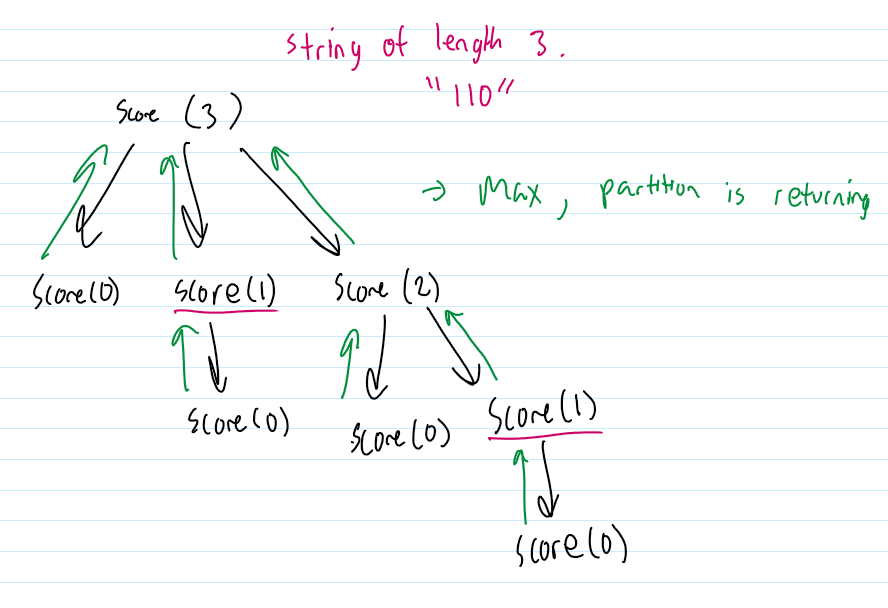 string of length 3.
"110"
Score (3)
→ Max, partition is returning
Score(0) Score(1) Score (2)
Score(0) Score(0) Score(1)
Score(0)